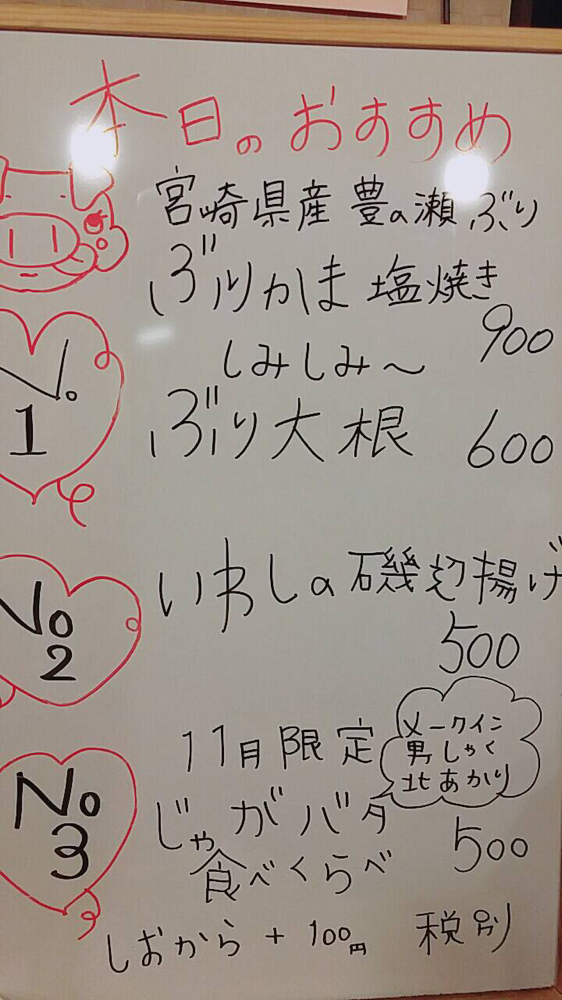 本日のおすすめ
宮崎県産 豊の瀬ぶり
ぶりかま塩焼き
900
No.1
しみしみ〜
ぶり大根 600
No2
いわしの磯辺揚げ
500
11月限定
メークイン
男しゃく
北あかり
No3
じゃがバタ
食べくらべ 500
しおから + 100円 税別